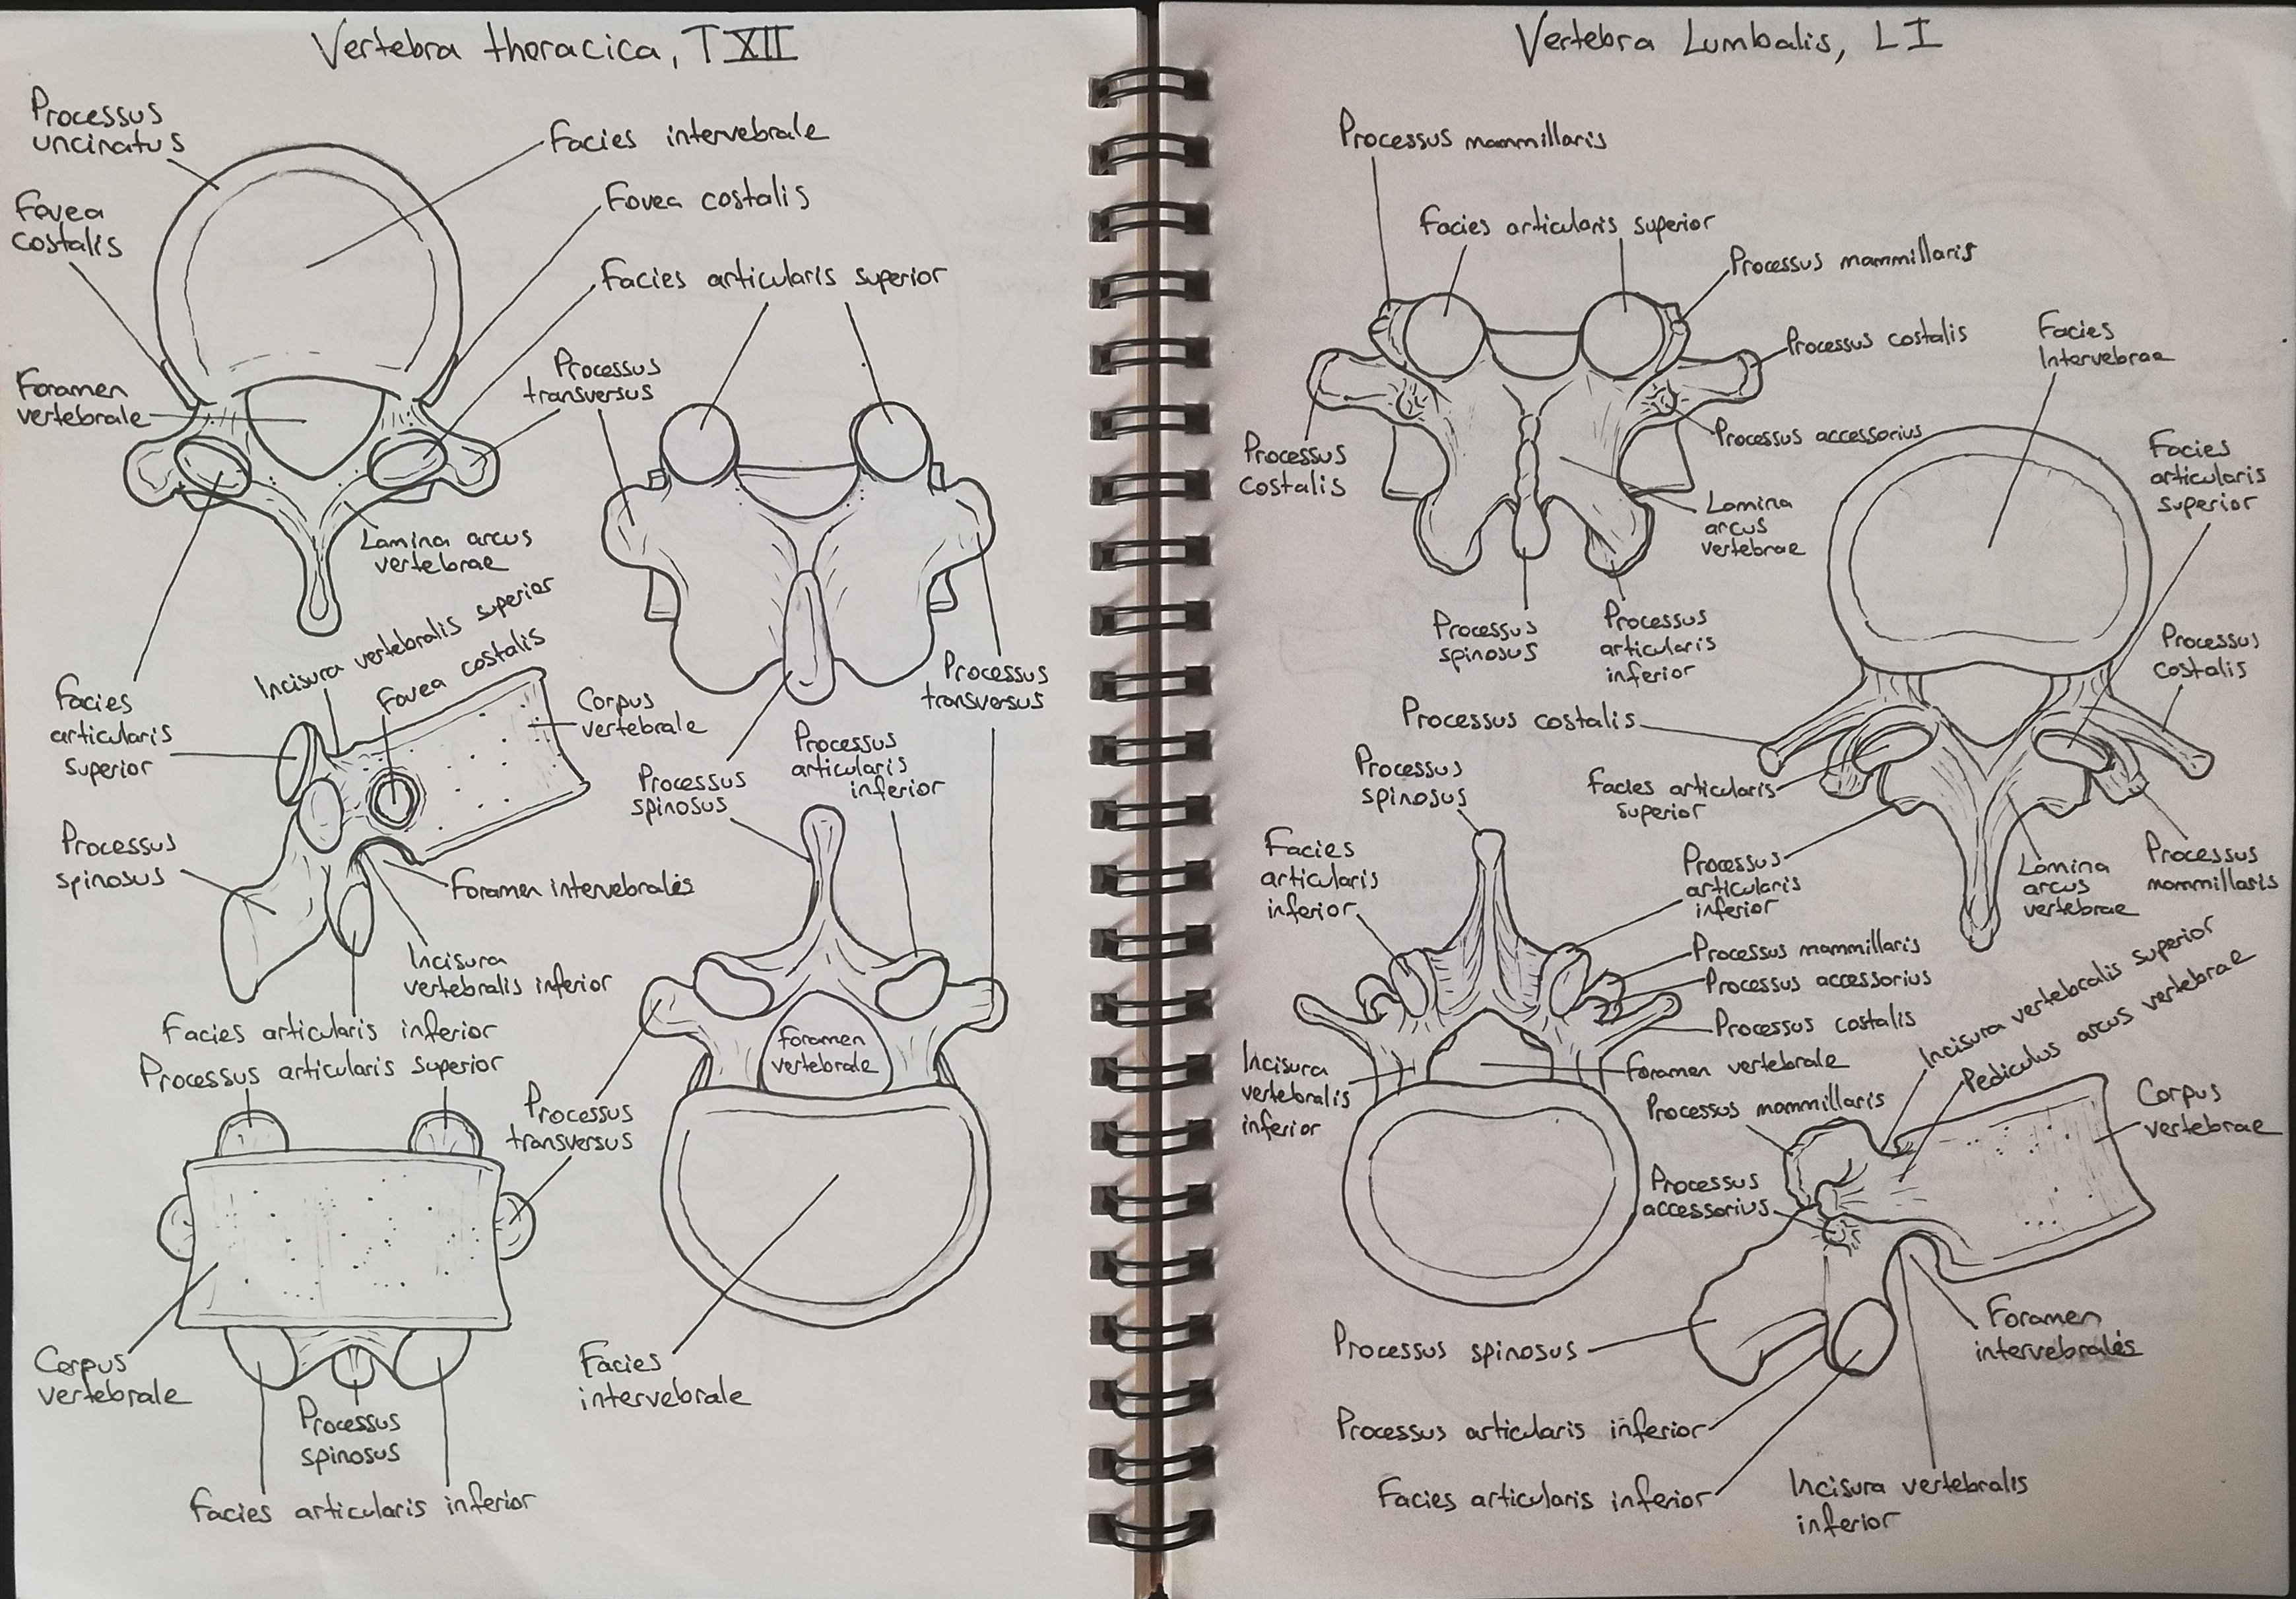 Vertebra thoracica, TXII
Processus
uncinatus
Facies intervebrale
Fovea
costalis
Fovea costalis
Facies articularis superior
Foramen
vertebrale
Processus
transversus
Lamina arcus
vertebrae
Incisura vertebralis superior
Fovea costalis
Facies
articularis
superior
Corpus
vertebrale
Processus
transversus
Processus
spinosus
Processus
articularis
inferior
Processus
spinosus
Foramen intervebralis
Incisura
vertebralis inferior
Facies articularis inferior
Processus articularis superior
Foramen
vertebrale
Processus
transversus
Corpus
vertebrale
Processus
spinosus
Facies articularis inferior
Facies
intervebrale
Vertebra Lumbalis, LI
Processus mammillaris
Facies articularis superior
Processus mammillaris
Processus costalis
Facies
Intervebrae
Processus
costalis
Processus accessorius
Facies
articularis
superior
Lamina
arcus
vertebrae
Processus
spinosus
Processus
articularis
inferior
Processus
costalis
Processus costalis
Processus
spinosus
Facies articularis
superior
Facies
articularis
inferior
Processus
articularis
inferior
Lamina
arcus
vertebrae
Processus
mammillaris
Processus mammillaris
Processus accessorius
Processus costalis
Incisura vertebralis superior
Pediculus arcus vertebrae
Incisura
vertebralis
inferior
Foramen vertebrale
Processus mammillaris
Corpus
vertebrae
Processus
accessorius
Processus spinosus
Foramen
intervebralis
Processus articularis inferior
Facies articularis inferior
Incisura vertebralis
inferior